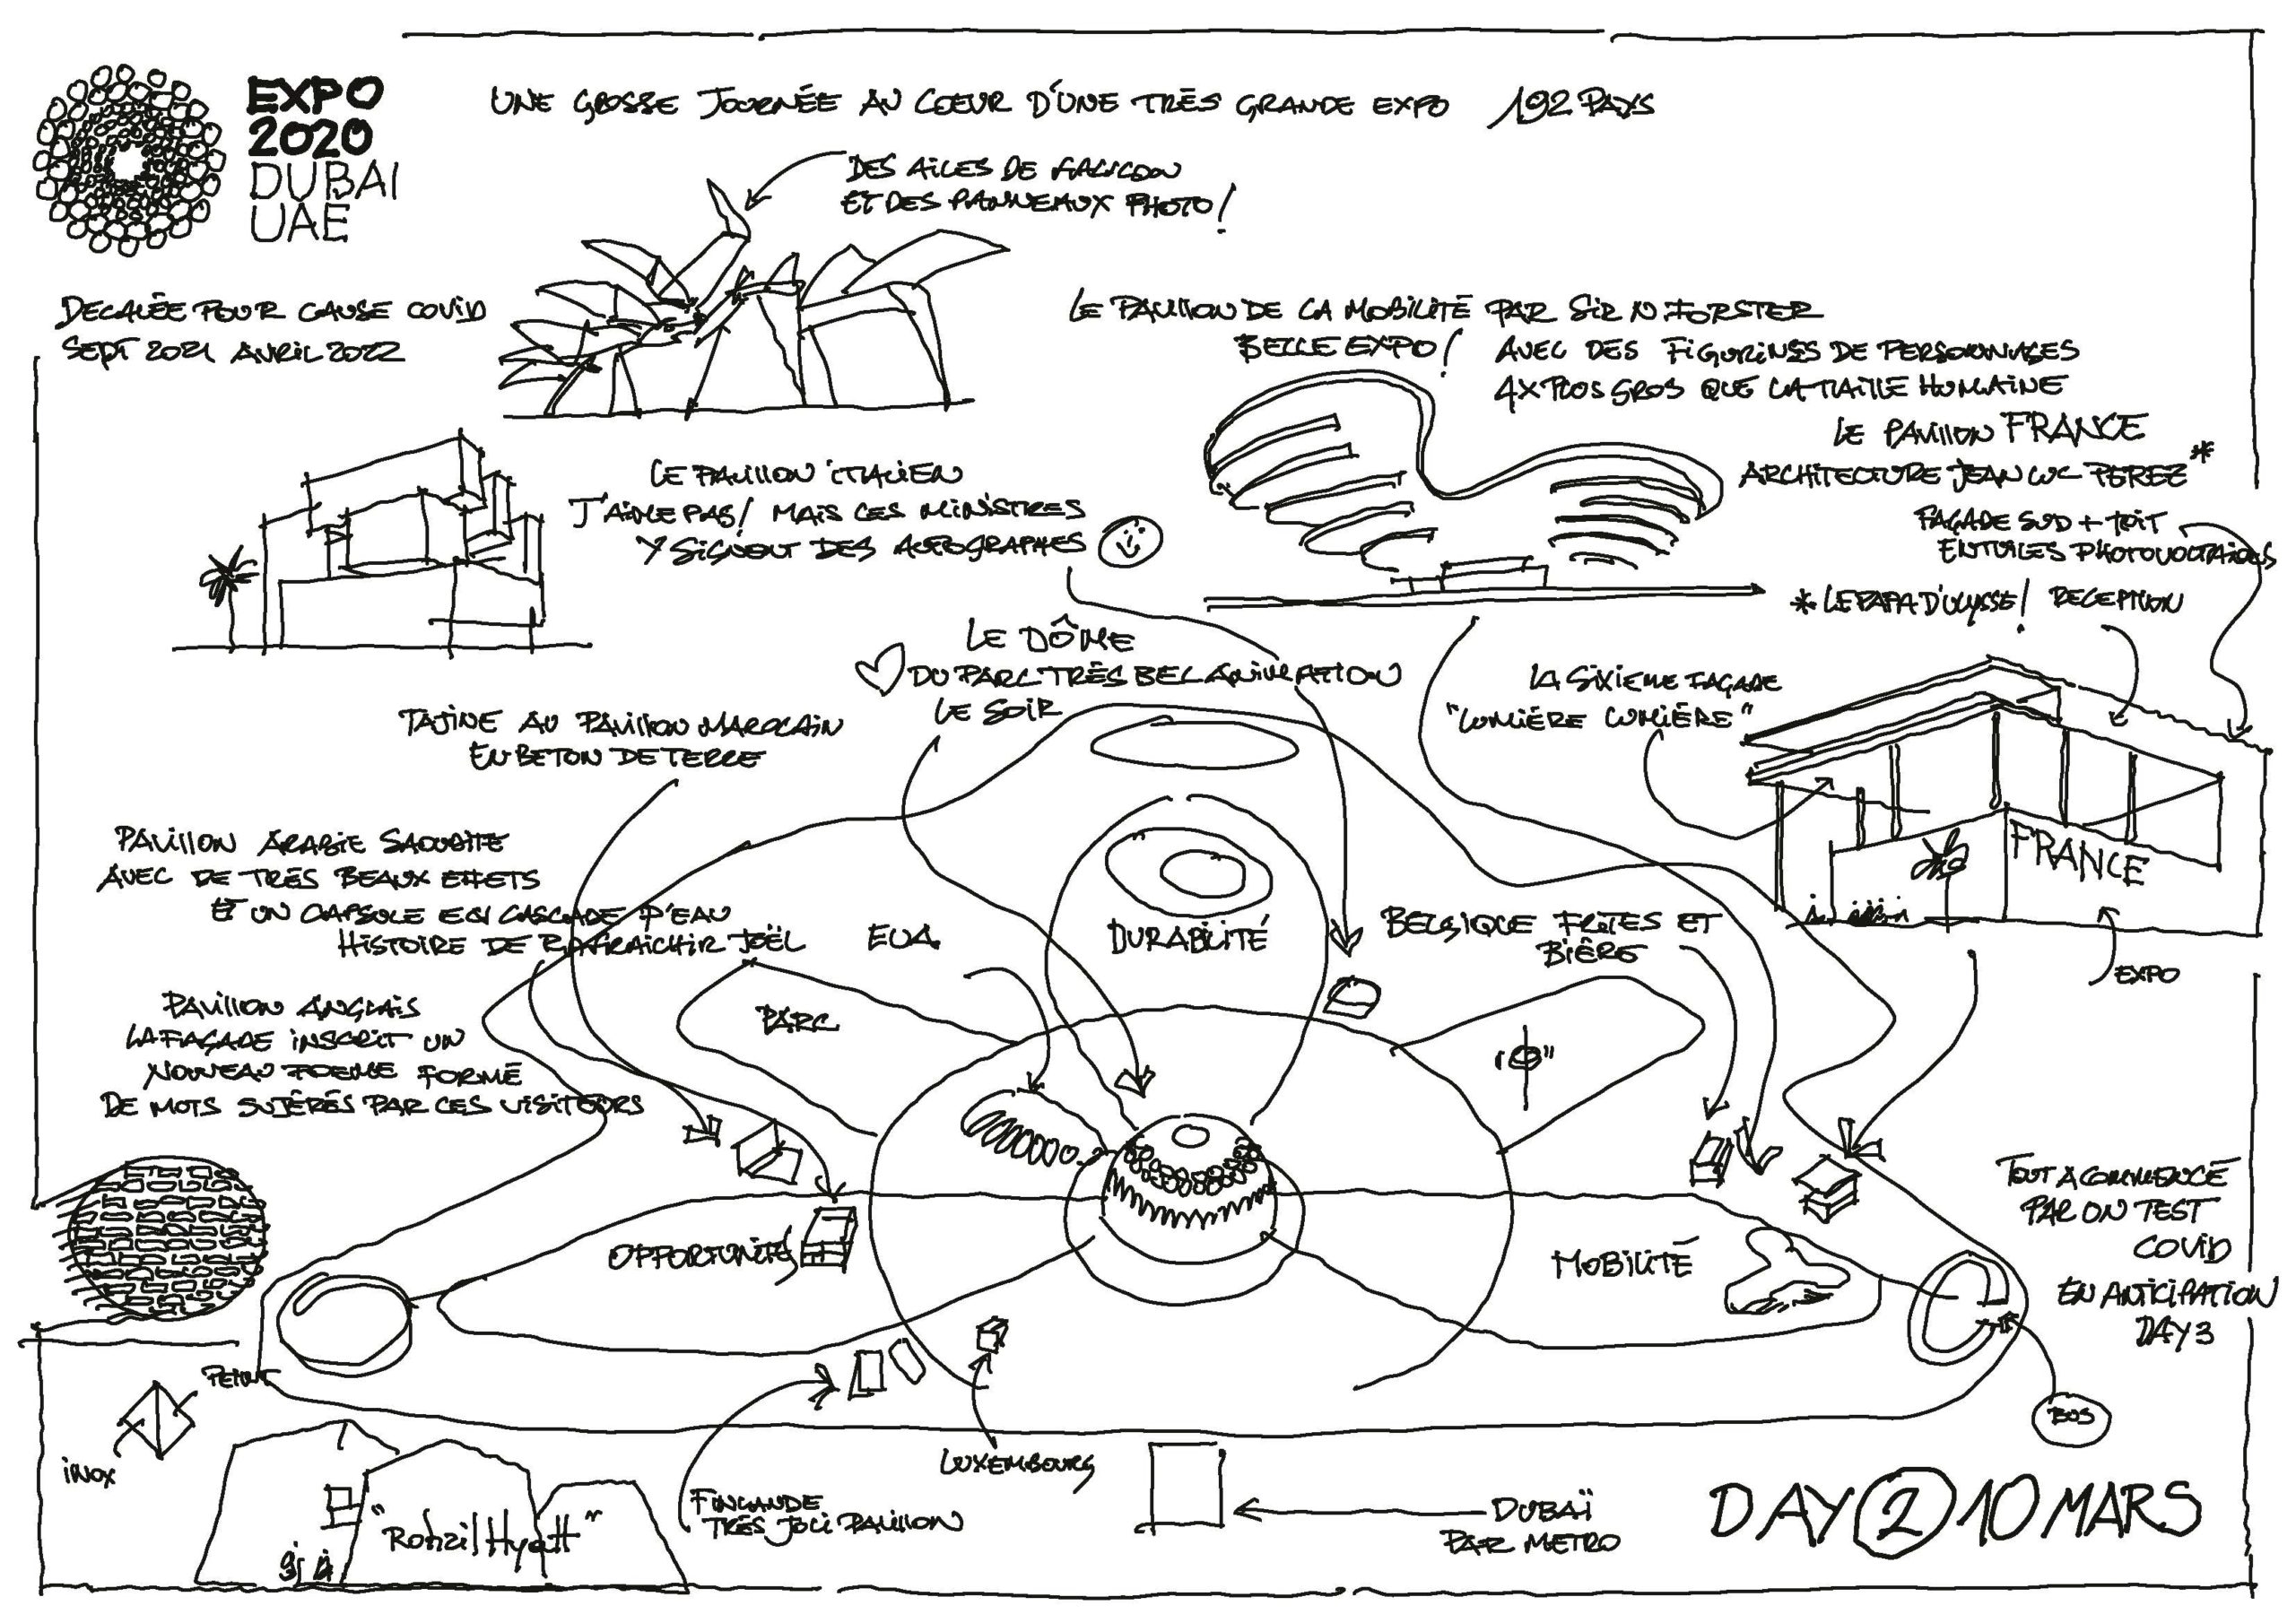 EXPO
2020
DUBAI
UAE
UNE GROSSE JOURNÉE AU COEUR D'UNE TRÈS GRANDE EXPO 192 PAYS
DES AILES DE
ET DES PANNEAUX PHOTO!
DECALÉE POUR CAUSE COVID
SEPT 2021 AVRIL 2022
LE PAVILLON DE LA MOBILITÉ PAR SIR N.FORSTER
BELLE EXPO! AVEC DES FIGURINES DE PERSONNAGES
4X PLUS GROS QUE LA TAILLE HUMAINE
LE PAVILLON FRANCE
ARCHITECTURE JEAN LUC PEREZ *
FAÇADE SUD + TOIT
EN TUILES PHOTOVOLTAIQUES
* LE PAPA D'ULYSSE! RECEPTION
LE PAVILLON ITALIEN
J'AIME PAS! MAIS LES MINISTRES
Y SIGNENT DES AUTOGRAPHES
LE DÔME
DU PARC TRÈS BEL ANIMATION
LE SOIR
LA SIXIEME FAÇADE
"LUMIÈRE LUMIÈRE"
TAJINE AU PAVILLON MAROCAIN
EN BETON DE TERRE
PAVILLON ARABIE SAOUDITE
AVEC DE TRÈS BEAUX EFFETS
ET UN CAPSULE EN CASCADE D'EAU
HISTOIRE DE RAFRAICHIR JOËL
EUA
DURABILITÉ
BELGIQUE FRITES ET
BIÈRE
FRANCE
EXPO
PARC
PAVILLON ANGLAIS
LA FAÇADE INSCRIT UN
NOUVEAU POEME FORMÉ
DE MOTS SUJÉRÉS PAR LES VISITEURS
OPPORTUNITÉ
MOBILITÉ
TOUT A COMMENCÉ
PAR UN TEST
COVID
EN ANTICIPATION
DAY 3
PEINT
INOX
BUS
LUXEMBOURG
FINLANDE
TRÈS JOLI PAVILLON
DUBAÏ
PAR METRO
DAY 2 10 MARS